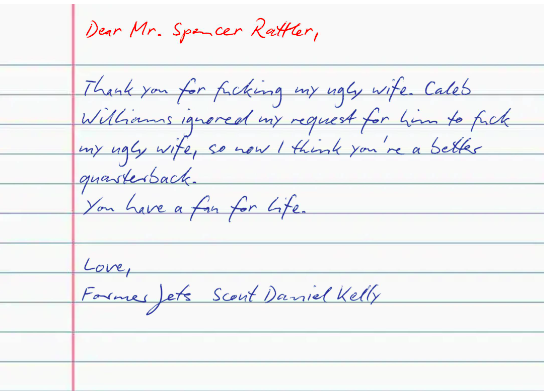 Dear Mr. Spencer Rattler,
Thank you for fucking my ugly wife. Caleb
Williams ignored my request for him to fuck
my ugly wife, so now I think you're a better
quarterback.
You have a fan for life.
Love,
Former Jets Scout Daniel Kelly